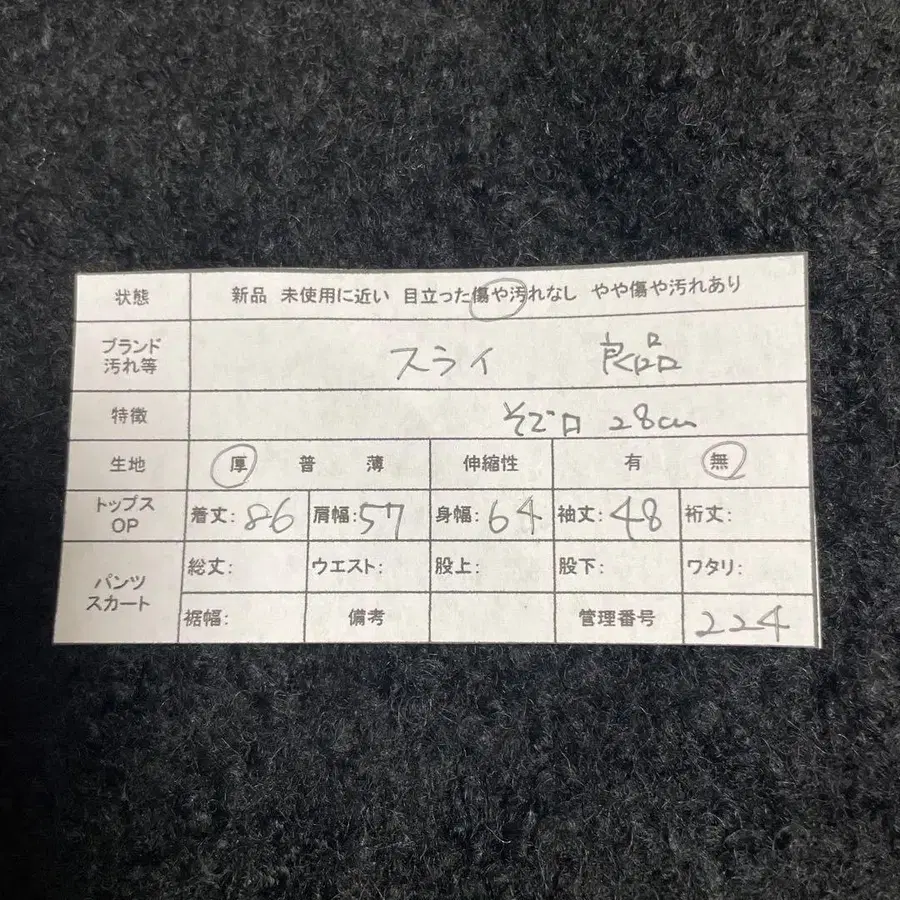 状態 新品 未使用に近い 目立った傷や汚れなし やや傷や汚れあり
ブランド
汚れ等 スライ 良品
特徴 そで口 28cm
生地 厚 普 薄 伸縮性 有 無
トップス
OP 着丈:86 肩幅:57 身幅:64 袖丈:48 裄丈:
パンツ
スカート 総丈: ウエスト: 股上: 股下: ワタリ:
裾幅: 備考 管理番号 224